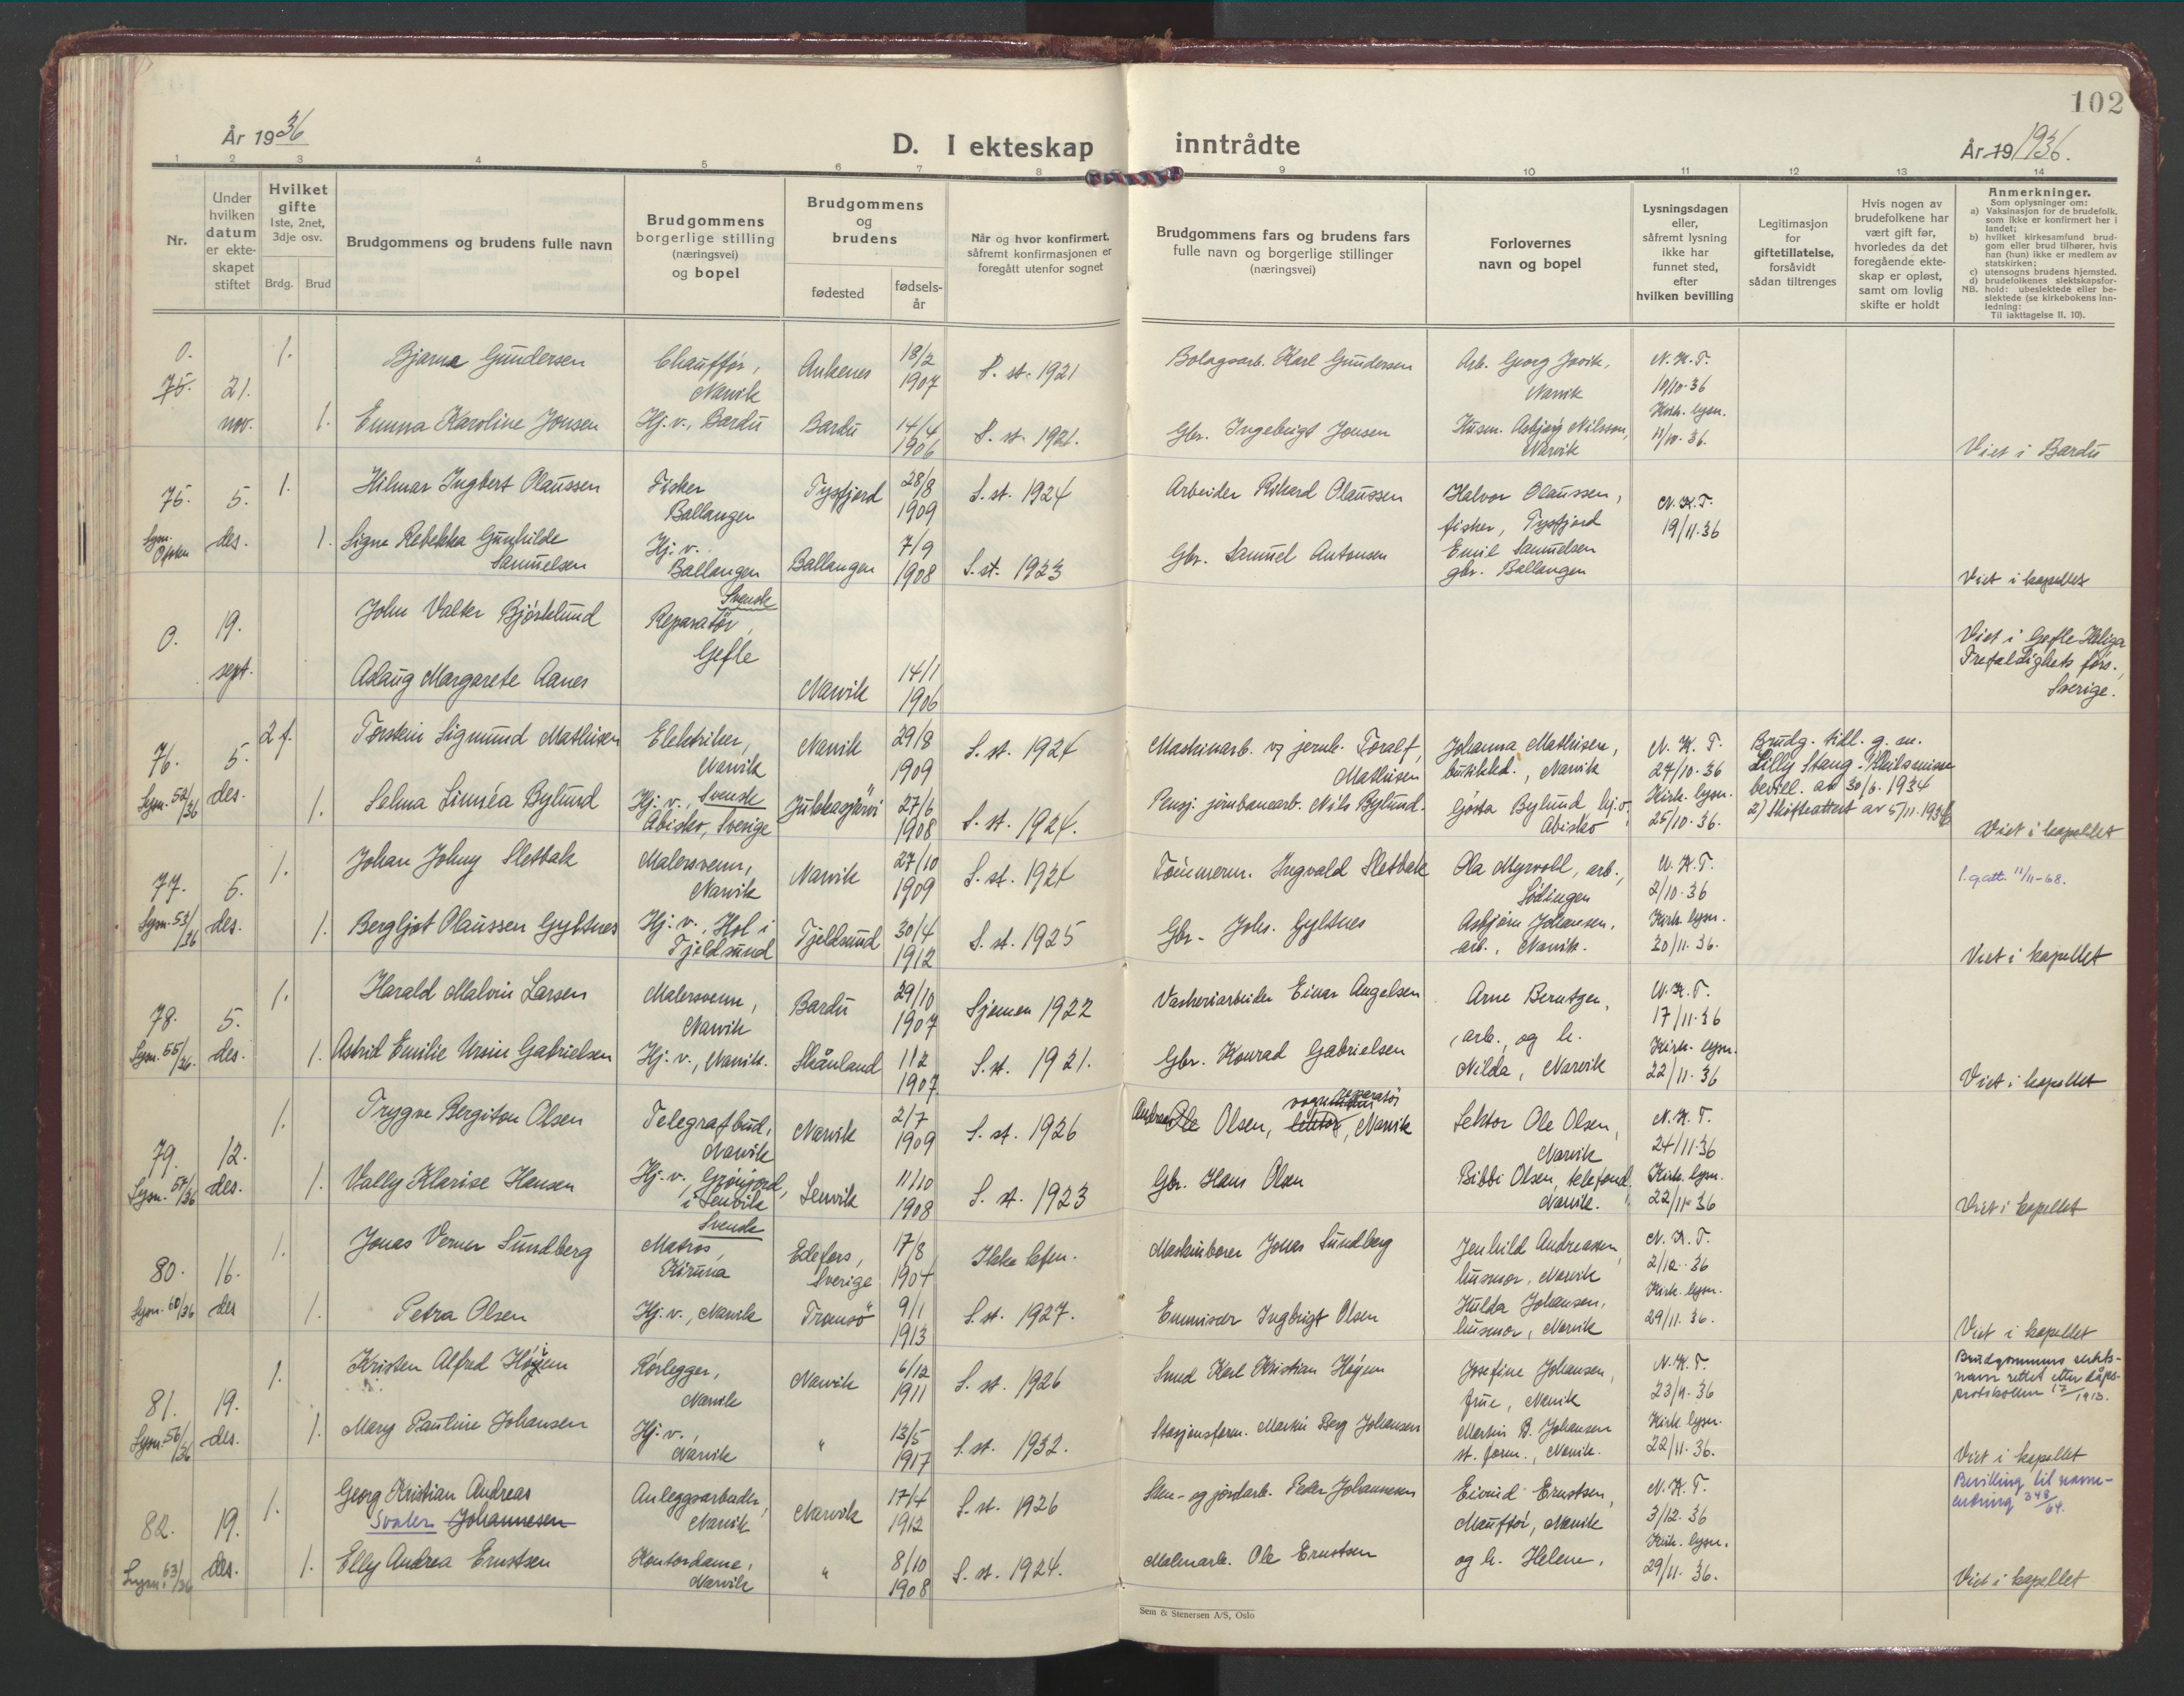 102
År 1936
D. I ekteskap inntrådte
År 19 1936.
1 2 3 4 5 6 7 8 9 10 11 12 13 14
Nr.
Under hvilken datum er ekteskapet stiftet
Hvilket gifte
1ste, 2net, 3dje osv.
Brdg. Brud
Brudgommens og brudens fulle navn
Brudgommens borgerlige stilling (næringsvei) og bopel
Brudgommens og brudens
fødested
fødselsår
Når og hvor konfirmert.
såfremt konfirmasjonen er
foregått utenfor sognet
Brudgommens fars og brudens fars
fulle navn og borgerlige stillinger
(næringsvei)
Forlovernes
navn og bopel
Lysningsdagen
eller,
såfremt lysning
ikke har
funnet sted,
efter
hvilken bevilling
Legitimasjon
for
giftetillatelse,
forsåvidt
sådan tiltrenges
Hvis nogen av
brudefolkene har
vært gift før,
hvorledes da det
foregående ekte-
skap er opløst,
samt om lovlig
skifte er holdt
Anmerkninger.
Som oplysninger om:
a) Vaksinasjon for de brudefolk,
som ikke er konfirmert her i
landet;
b) hvilket kirkesamfund brud-
gom eller brud tilhører, hvis
han (hun) ikke er medlem av
statskirken;
c) utensogns brudens hjemsted.
d) brudefolkenes slektskapsfor-
NB. hold: ubeslektede eller be-
slektede (se kirkebokens inn-
ledning:
Til iakttagelse II. 10).
0. 75. 21. nov.
1. Bjarne Gundersen Chauffør, Narvik Ankenes 18/2 1907 S. st. 1921 Bolagsarb. Karl Gundersen Arb. Georg Jovik, Narvik N. K. T. 10/10-36
1. Emma Karoline Jonsen Hj. v., Bardu Bardu 14/4 1906 S. st. 1921. Gbr. Ingebrigt Jonsen Husm. Asbjørg Nilsson, Narvik Kirk. lysn. 11/10. 36. Viet i Bardu
75. Lysn. Ofoten 5. des.
1. Hilmar Ingbert Olaussen Fisker Ballangen Tysfjord 28/8 1909 S. st. 1924 Arbeider Rikard Olaussen Halvor Olaussen, fisker, Tysfjord N. K. T. 19/11.36
1. Signe Rebekka Gunhilde Samuelsen Hj. v. Ballangen Ballangen 7/9 1908 S. st. 1923 Gbr. Samuel Antonsen Emil Samuelsen gbr. Ballangen Viet i kapellet
0. 19. sept.
John Valter Björklund Svensk Reparatør, Gefle
Aslaug Margarete Aanes Narvik 14/1 1906 Viet i Gefle Heliga Trefaldighets förs., Sverige.
76. Lysn. 52/36 5. des.
2 f. Torstein Sigmund Mathisen Elektriker, Narvik Narvik 29/8 1909 S. st. 1924 Maskinarb. v/ jernb. Toralf Mathisen Johanna Mathisen, butikkd., Narvik N. K. T. 24/10-36 Brudg. tidl. g. m. Lilly Stang
bevill. av 30/6. 1934
2) Skifteattest av 5/11. 1936
1. Selma Linnéa Bylund Hj. v., Svensk Abisko, Sverige Jukkasjärvi 27/6 1908 S. st. 1924. Pensj. jernbanearb. Nils Bylund. Gösta Bylund hj. v., Abisko Kirk. lysn. 25/10-36. Viet i kapellet
77. Lysn. 53/36 5. des.
1. Johan Johny Sletbak Malersvenn, Narvik Narvik 27/10 1909 S. st. 1924 Tømmerm. Ingvald Sletbak Ola Myrvoll, arb., Lödingen N. K. T. 2/10.36 1. g. att. 11/11-68.
1. Bergljot Olaussen Gyltnes Hj. v., Hol i Tjeldsund Tjeldsund 30/4 1912 S. st. 1925 Gbr. Johs. Gyltnes Asbjørn Johansen, arb., Narvik. Kirk. lysn. 30/11. 36. Viet i kapellet
78. Lysn. 55/36. 5. des.
1. Harald Malvin Larsen Malersvenn, Narvik Bardu 29/10 1907 Sjømen 1922 Vaskeriarbeider Einar Angelsen Arne Berntzen, arb., og h. N. K. T. 17/11.36
1. Astrid Emilie Ursin Gabrielsen Hj. v., Narvik. Skånland 11/2 1907 S. st. 1921. Gbr. Konrad Gabrielsen Nilda, Narvik Kirk. lysn. 22/11. 36 Viet i kapellet
79. Lysn. 57/36 12. des.
1. Trygve Bergiton Olsen Telegrafbud, Narvik Narvik 2/7 1909 S. st. 1926 Andreas Ole Olsen, lektor, Narvik Lektor Ole Olsen, Narvik N. K. T. 24/11-36
1. Vally Klarise Hansen Hj. v., Grønjord, i Lenvik Lenvik 11/10 1908 S. st. 1923 Gbr. Hans Olsen Bibbi Olsen, telefond., Narvik. Kirk. lysn. 22/11-36 Viet i kapellet
80. Lysn. 60/36 16. des
1. Jonas Verner Sundberg Svensk Matros, Kiruna Edefors, Sverige 17/8 1904 Ikke kfn. Maskinborer Jonas Sundberg Jenhild Andreassen, husmor, Narvik N. K. T. 2/12. 36
1. Petra Olsen Hj. v., Narvik Tromsö 9/1 1913 S. st. 1927. Emmisær Ingbrigt Olsen Hulda Johansen, husmor, Narvik Kirk. lysn. 29/11. 36. Viet i kapellet
81. Lysn. 56/36 19. des.
1. Kristen Alfred Høyem Rørlegger, Narvik Narvik 6/12 1911 S. st. 1926 Smed Karl Kristian Høgem Josefine Johansen, frue, Narvik N. K. T. 23/11. 36 Brudgommens slekts-
navn rettet etter dåps-
protokollen 17/1913.
1. Mary Pauline Johansen Hj. v., Narvik " 13/5 1917 S. st. 1932. Stasjonsform. Martin Berg Johansen Martin B. Johansen st. form., Narvik. Kirk. lysn. 22/11. 36. Viet i kapellet
82. Lysn. 63/36 19. des.
1. Georg Kristian Andreas Svaler Johannesen Anleggsarbeider, Narvik Narvik 17/4 1912 S. st. 1926 Sten- og jordarb. Peder Johannesen Eivind Ernstsen, Chauffør, Narvik N. K. T. 3/12. 36 Bevilling til navne-
endring 348/64.
1. Elly Andrea Ernstsen Kontordame, Narvik " 8/10 1908 S. st. 1924. Malmarb. Ole Ernstsen og h. Helene, Kirk. lysn. 29/11. 36. Viet i kapellet
Sem & Stenersen A/S, Oslo